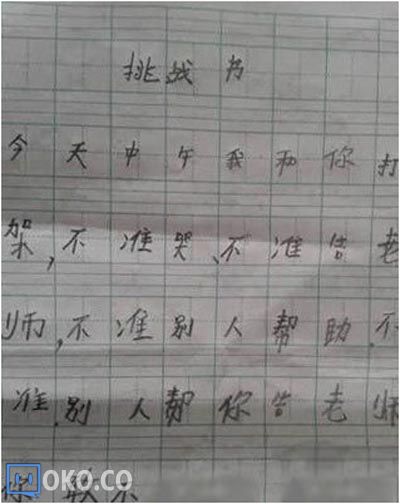 挑战书
今天中午我和你打
架,不准哭、不准告老
师,不准别人帮助.不
准.别人帮你告老师
你敢不
OKO.CO